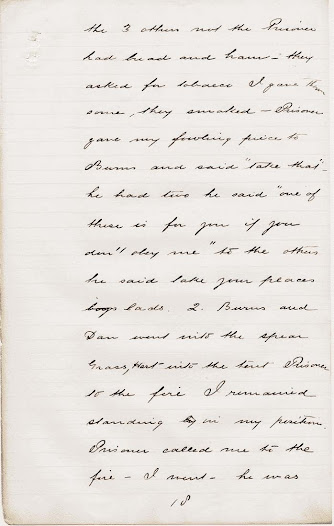 the 3 others not the Prisoner
had bread and ham - they
asked for tobacco I gave them
some, they smoked - Prisoner
gave my fowling piece to
Burns and said "take that" -
he had two he said "one of
these is for you if you
don't obey me" to the others
he said take your places
boys lads. 2. Burns and
Dan went into the spear
Grass, Hart into the tent Prisoner
to the fire I remained
standing in my position.
Prisoner called me to the
fire - I went - he was
18